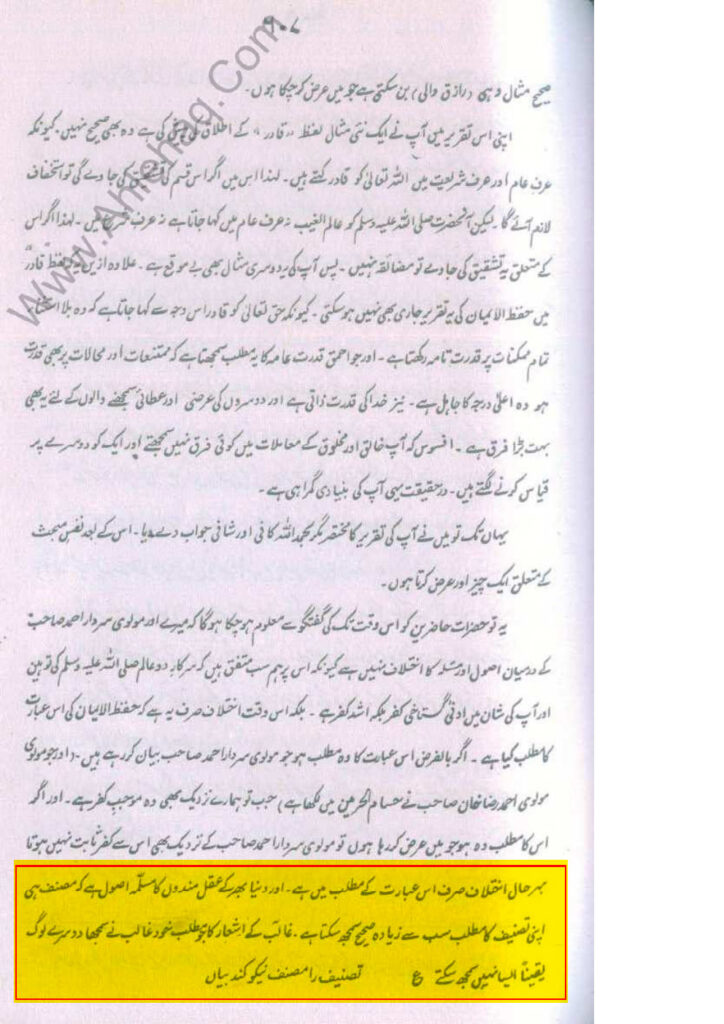 ۹۰۸
صحیح مثال وہی (رازق والی) بن سکتی ہے جو میں عرض کر چکا ہوں۔
اپنی اس تقریر میں آپ نے ایک نئی مثال لفظ "قادر" کے اطلاق کی پیش کی ہے وہ بھی صحیح نہیں۔ کیونکہ
عرف عام اور عرف شریعت میں اللہ تعالیٰ کو قادر کہتے ہیں۔ لہذا اس میں اگر اس قسم کی تشقیق کی جاوے گی تو استخفاف
لازم آئے گا۔ لیکن آنحضرت صلی اللہ علیہ وسلم کو عالم الغیب نہ عرف عام میں کہا جاتا ہے نہ عرف شرع میں۔ لہذا اگر اس
کے متعلق یہ تشقیق کی جاوے تو مضائقہ نہیں۔ پس آپ کی یہ دوسری مثال بھی بے موقع ہے۔ علاوہ ازیں لفظ "قادر"
میں حفظ الایمان کی یہ تقریر جاری بھی نہیں ہو سکتی۔ کیونکہ حق تعالیٰ کو قادر اس وجہ سے کہا جاتا ہے کہ وہ بلا استثناء
تمام ممکنات پر قدرت تامہ رکھتا ہے۔ اور جو احمق قدرت عامہ کا یہ مطلب سمجھتا ہے کہ ممتنعات اور محالات پر بھی قدرت
ہو وہ اعلیٰ درجہ کا جاہل ہے۔ نیز خدا کی قدرت ذاتی ہے اور دوسروں کی عرضی اور عطائی سمجھنے والوں کے لئے یہ بھی
بہت بڑا فرق ہے۔ افسوس کہ آپ خالق اور مخلوق کے معاملات میں کوئی فرق نہیں سمجھتے اور ایک کو دوسرے پر
قیاس کرنے لگتے ہیں۔ درحقیقت یہی آپ کی بنیادی گمراہی ہے۔
یہاں تک تو میں نے آپ کی تقریر کا مختصر مگر بحمد اللہ کافی اور شافی جواب دے دیا۔ اس کے بعد نفس مبحث
کے متعلق ایک چیز اور عرض کرتا ہوں۔
یہ تو حضرات حاضرین کو اس وقت تک کی گفتگو سے معلوم ہو چکا ہوگا کہ میرے اور مولوی سردار احمد صاحب
کے درمیان اصول اور مسئلہ کا اختلاف نہیں ہے کیونکہ اس پر ہم سب متفق ہیں کہ سرکار دو عالم صلی اللہ علیہ وسلم کی توہین
اور آپ کی شان میں ادنیٰ گستاخی کفر بلکہ اشد کفر ہے۔ بلکہ اس وقت اختلاف صرف یہ ہے کہ حفظ الایمان کی اس عبارت
کا مطلب کیا ہے۔ اگر بالفرض اس عبارت کا وہ مطلب ہو جو مولوی سردار احمد صاحب بیان کر رہے ہیں۔ (اور جو مولوی
مولوی احمد رضا خان صاحب نے حسام الحرمین میں لکھا ہے) جب تو ہمارے نزدیک بھی وہ موجب کفر ہے۔ اور اگر
اس کا مطلب وہ ہو جو میں عرض کر رہا ہوں تو مولوی سردار احمد صاحب کے نزدیک بھی اس سے کفر ثابت نہیں ہوتا
بہرحال اختلاف صرف اس عبارت کے مطلب میں ہے۔ اور دنیا بھر کے عقل مندوں کا مسلّمہ اصول ہے کہ مصنف ہی
اپنی تصنیف کا مطلب سب سے زیادہ صحیح سمجھ سکتا ہے۔ غالب کے اشعار کا جو مطلب خود غالب نے سمجھا دوسرے لوگ
یقیناً ایسا نہیں سمجھ سکتے ع تصنیف را مصنف نیکو کند بیاں
www.Ahlehaq.Com